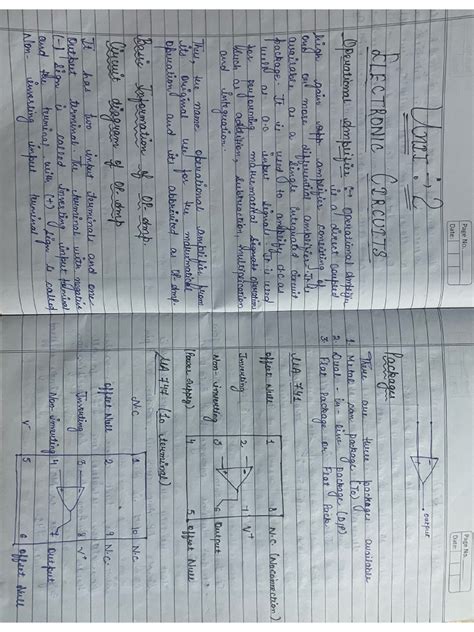 Page No.
Date:
Unit: 2
ELECTRONIC CIRCUITS
Operational Amplifier :-> Operational Amplifier is a direct coupled
high gain amplifier consisting of
one or more differential amplifier. It is
available as a single integrated circuit
package. It is used to amplify dc as
well as a.c input signals. It is used
for performing mathematical operation
such as addition, subtraction, multiplication
and integration.
Thus, the name operational amplifier from
its original use for the mathematical
operation, and its abbreviated as op-Amp.
Basic Information of Op-Amp
Circuit diagram of Op-Amp
It has two input terminals and one
output terminal. The terminal with negative
(-) sign is called Inverting input terminal
and the terminal with (+) sign is called
Non inverting input terminal.
Page No.
Date:
output
Packages
There are three packages available
1. Metal can package (To)
2. Dual-in-line package (DIP)
3. Flat Package or Flat Pack
MA 741
offset Null 1 8 N.C (No connection)
Inverting 2 7 V+
Non-inverting 3 6 Output
(Power supply) 4 5 offset Null
MA 747 (10 terminal)
N.C 1 10 N.C
offset Null 2 9 N.C
Inverting 3 8 V+
Non inverting 4 7 Output
V- 5 6 offset Null